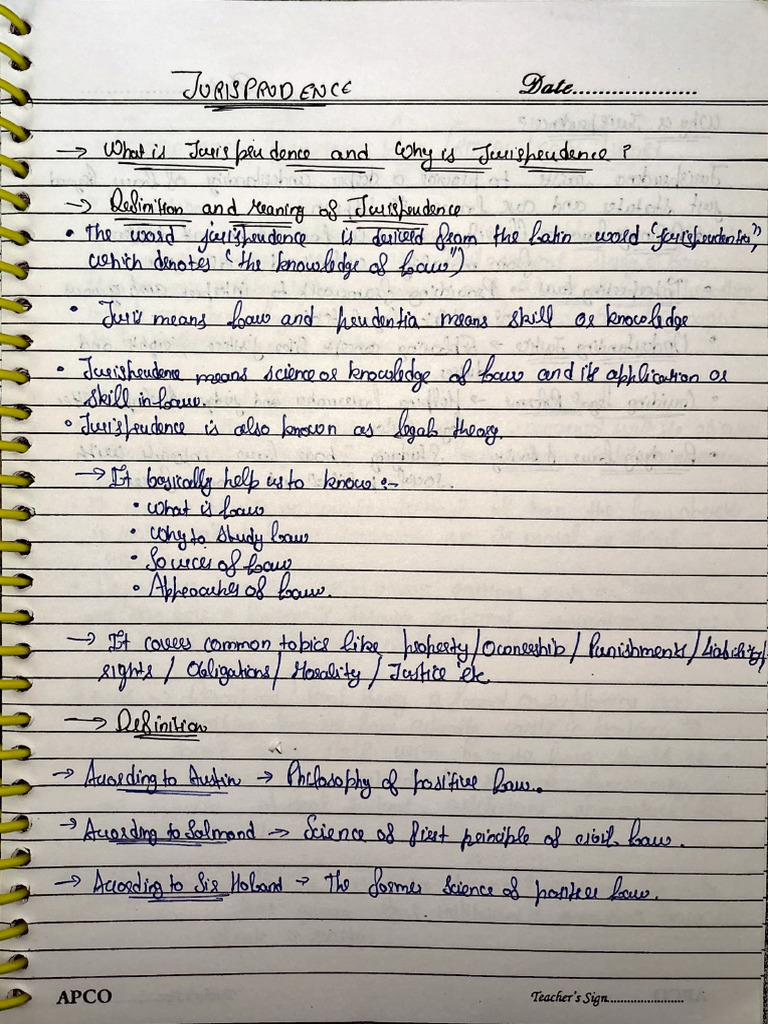 JURISPRUDENCE Date.....................
→ What is Jurisprudence and Why is Jurisprudence ?
→ Definition and meaning of Jurisprudence
• The word jurisprudence is derived from the Latin word "jurisprudentia",
which denotes ("the knowledge of Law")
• Juris means Law and prudentia means skill or knowledge
• Jurisprudence means science or knowledge of Law and its application or
skill in Law.
• Jurisprudence is also known as legal theory.
→ It basically help us to know :-
• What is Law
• Why to study Law
• Sources of Law
• Approaches of Law.
→ It covers common topics like property/Ownership/Punishments/Liability/
rights / Obligations/ Morality / Justice etc
→ Definition
→ According to Austin → Philosophy of positive Law.
→ According to Salmond → Science of first principle of civil Law.
→ According to Sir Holand → The former science of positive Law.
APCO Teacher's Sign........................